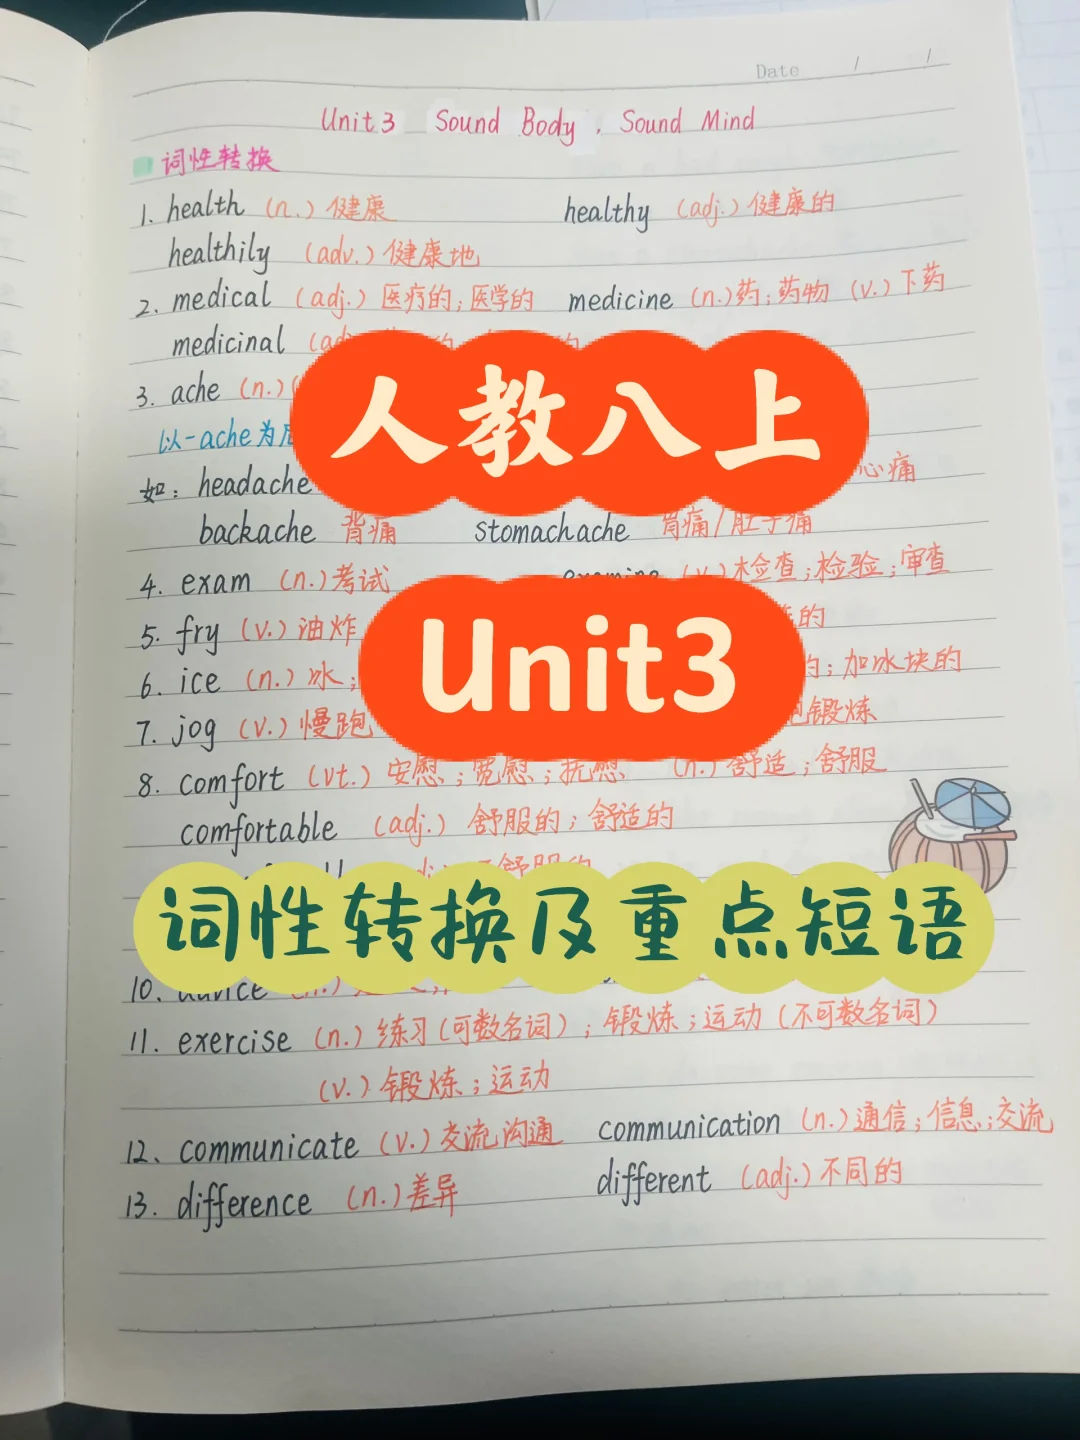 Date / /
Unit 3 Sound Body, Sound Mind
词性转换
1. health (n.) 健康 healthy (adj.) 健康的
healthily (adv.) 健康地
2. medical (adj.) 医疗的;医学的 medicine (n.)药;药物 (v.)下药
medicinal
3. ache (n.)
人教八上
以-ache为
如: headache 心痛
backache 背痛 stomachache 胃痛/肚子痛
4. exam (n.)考试 examine (v.)检查;检验;审查
5. fry (v.)油炸 的
Unit3
6. ice (n.)冰; 加冰块的
7. jog (v.)慢跑 锻炼
8. comfort (vt.) 安慰;宽慰;抚慰 (n.)舒适;舒服
comfortable (adj.) 舒服的;舒适的
词性转换及重点短语
10. advice
11. exercise (n.) 练习(可数名词);锻炼;运动(不可数名词)
(v.)锻炼;运动
12. communicate (v.)交流沟通 communication (n.)通信;信息;交流
13. difference (n.)差异 different (adj.)不同的